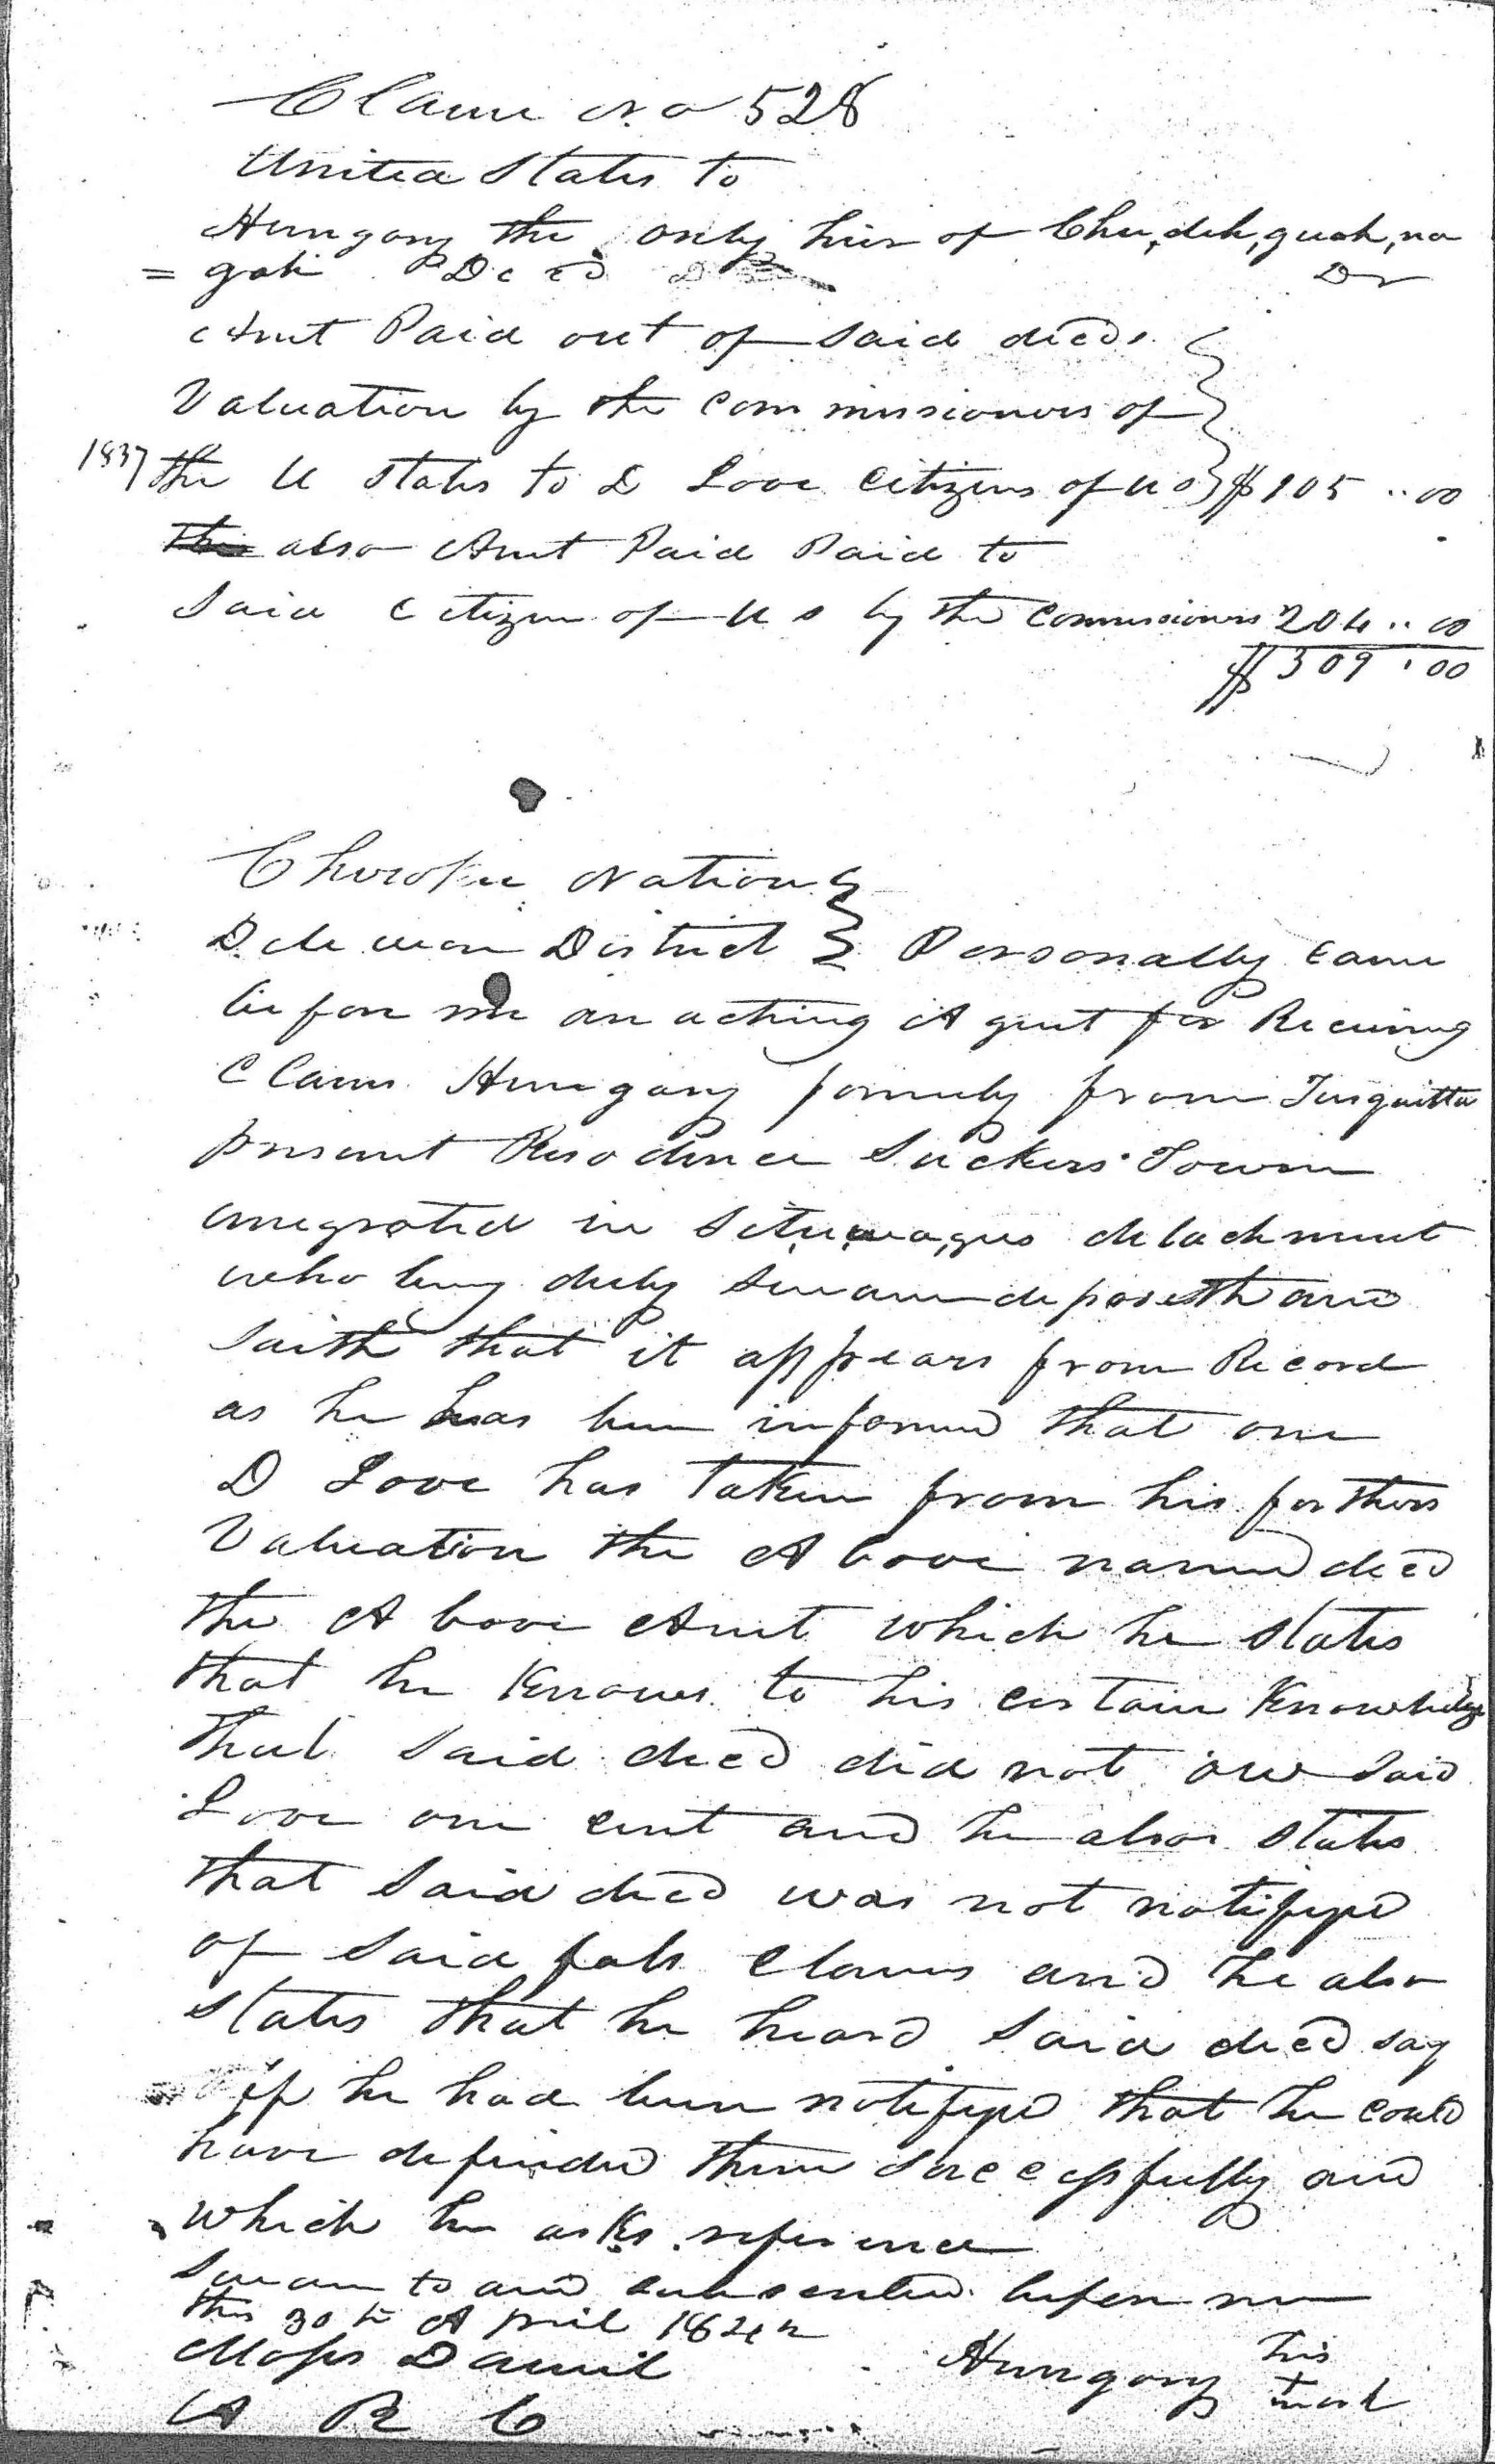 Claim No 528
United States to
Hungary the only heir of Chu,deh,quah,na
= gah Decd Dr
Amt Paid out of said decds
Valuation by the commissioners of
1837 the U States to D Love Citizens of U S $105..00
also Amt Paid Paid to
Said Citizen of U S by the Commissioners 204..00
$309.00
Cherokee Nation
Deleware District Personally came
before me an acting Agent for Receiving
Claims Hungary formerly from
present Resodence Suckers Town
emegrated in detachment
who being duly swarn deposeth and
saith that it appears from Record
as he has been informed that one
D Love has taken from his forthers
Valuation the Above named decd
the Above Amt which he states
that he Knows to his certain Knowledge
that said decd did not ow said
Love one cent and he also states
that said decd was not notifyed
of said fals claims and he also
states that he heard said decd say
if he had been notifyed that he could
have defended them succesfully and
which he asks reference
Swarn to and subscribed before me
this 30th April 1842
Moses Daniel
A R C
Hungary his
+
mark